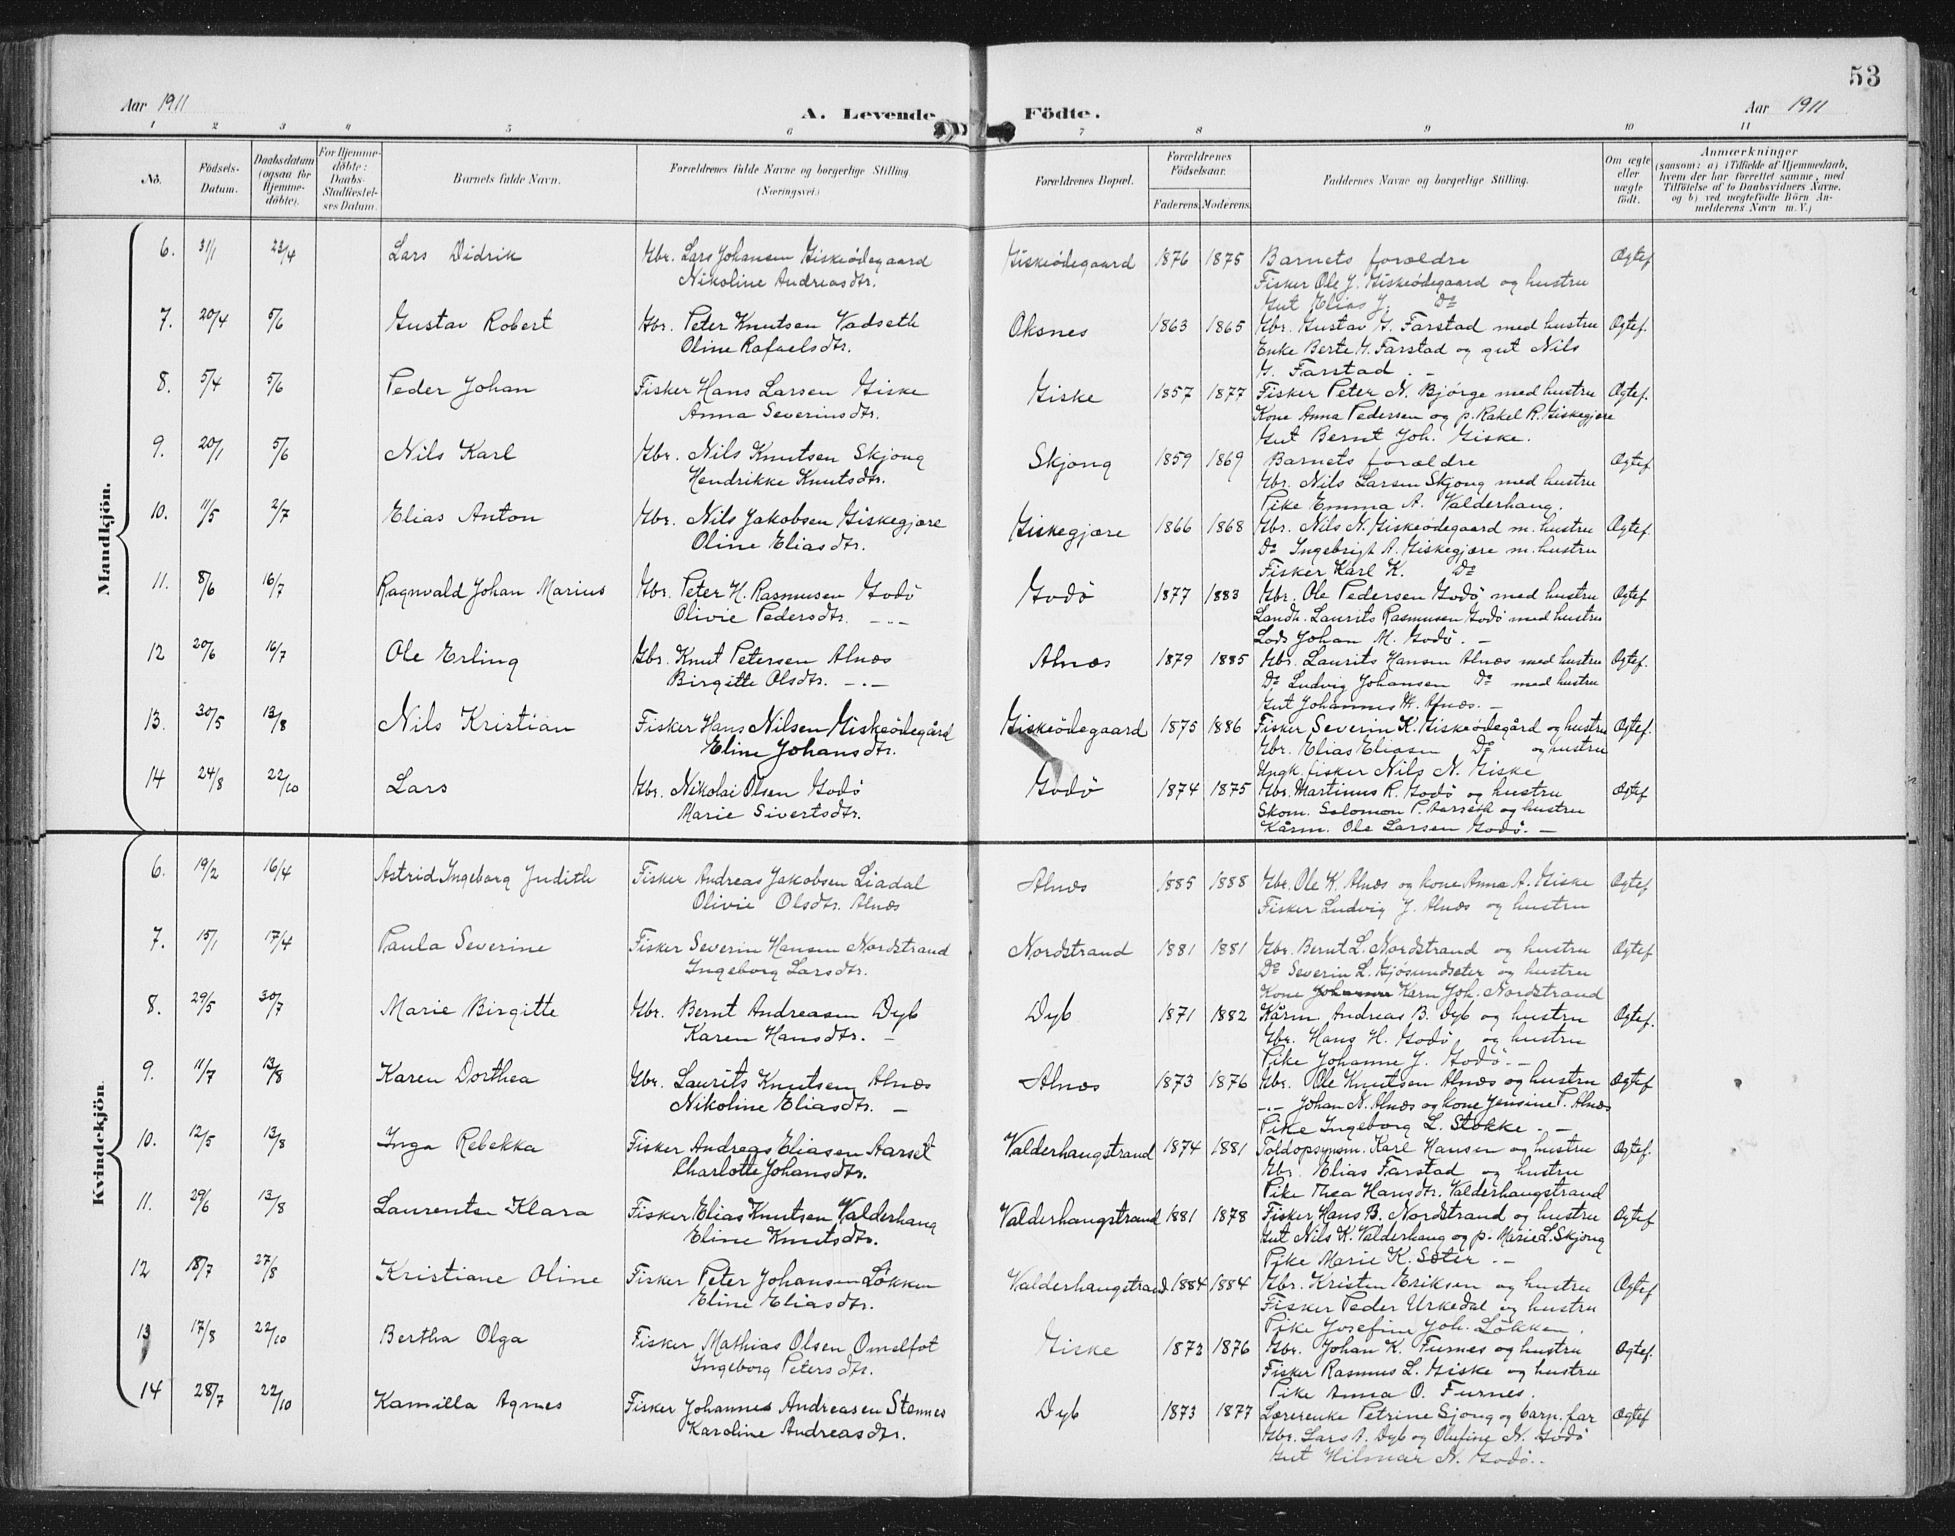 53
Aar 1911
A. Levende Födte.
Aar 1911
1 2 3 4 5 6 7 8 9 10 11
No.
Födsels-Datum.
Daabsdatum (ogsaa for Hjemmedöbte).
For Hjemmedöbte: Daabs-Stadfæstelses Datum.
Barnets fulde Navn.
Forældrenes fulde Navne og borgerlige Stilling (Næringsvei.)
Forældrenes Bopæl.
Forældrenes Födselsaar.
Faderens Moderens
Faddernes Navne og borgerlige Stilling.
Om ægte eller uægte födt.
Anmærkninger
(saasom: a) i Tilfælde af Hjemmedaab,
hvem der har forrettet samme, med
Tilföielse af to Daabsvidners Navne,
og b) ved uægtefödte Börn An-
melderens Navn m. V.)
Mandkjön.
6. 31/1 23/4 Lars Didrik Gbr. Lars Johansen Giskeødegaard Giskeødegaard 1876 1875 Barnets forældre Ægtef
Nikoline Andreasdtr. Fisker Ole J. Giskeødegaard og hustru
Gut Elias J. Do
7. 20/4 5/6 Gustav Robert Gbr. Peter Knutsen Vadseth Oksnes 1863 1865 Gbr. Gustav G. Farstad med hustru Ægtef.
Oline Rafaelsdtr. Enke Berte G. Farstad og gut Nils
G. Farstad. -
8. 5/4 5/6 Peder Johan Fisker Hans Larsen Giske Giske 1857 1877 Fisker Peter N. Bjørge med hustru Ægtef.
Anna Severinsdtr. Kone Anna Pedersen og p. Rakel R. Giskegjære
Gut Bernt Joh. Giske.
9. 20/1 5/6 Nils Karl Gbr. Nils Knutsen Skjong Skjong 1859 1869 Barnets forældre Ægtef
Hendrikke Knutsdtr. Gbr. Nils Larsen Skjong med hustru
Pike Emma A. Valderhaug.
10. 11/5 2/7 Elias Anton Gbr. Nils Jakobsen Giskegjære Giskegjære 1866 1868 Gbr. Nils N. Giskeødegaard m. hustru Ægtef.
Oline Eliasdtr. Do Ingebrigt A. Giskegjære m. hustru
Fisker Karl K. Do
11. 8/6 16/7 Ragnvald Johan Marius Gbr. Peter H. Rasmusen Godø Godø 1877 1883 Gbr. Ole Pedersen Godø med hustru Ægtef
Olivie Pedersdtr. - - - Landh. Laurits Rasmusen Godø med hustru
Lods Johan M. Godø. -
12 20/6 16/7 Ole Erling Gbr. Knut Petersen Alnæs Alnæs 1879 1885 Gbr. Laurits Hansen Alnæs med hustru Ægtef.
Birgitte Olsdtr. -.- Do Ludvig Johansen Do med hustru
Gut Johannes M. Alnæs. -
13. 30/5 13/8 Nils Kristian Fisker Hans Nilsen Giskeødegård Giskeødegaard 1875 1886 Fisker Severin K. Giskeødegård og hustru Ægtef.
Eline Johansdtr. Gbr. Elias Eliasen Do og hustru
Ungk. fisker Nils N. Giske
14 24/8 22/10 Lars Gbr. Nikolai Olsen Godø Godø 1874 1875 Gbr. Martinus R. Godø og hustru Ægtef
Marie Sivertsdtr. Skom. Solomon P. Aarseth og hustru
Kårm. Ole Larsen Godø. -
Kvindekjön.
6. 19/2 16/4 Astrid Ingeborg Judith Fisker Andreas Jakobsen Liadal Alnæs 1885 1888 Gbr. Ole K. Alnæs og kone Anna A. Giske Ægtef
Olivie Olsdtr. Alnæs Fisker Ludvig J. Alnæs og hustru
7. 15/1 17/4 Paula Severine Fisker Severin Hansen Nordstrand Nordstrand 1881 1881 Gbr. Bernt L. Nordstrand og hustru Ægtef
Ingeborg Larsdtr. Do Severin L. Gjøsundseter og hustru
Kone Karn Joh. Nordstrand
8. 29/5 30/7 Marie Birgitte Gbr. Bernt Andreasen Dyb Dyb 1871 1882 Kårm. Andreas B. Dyb og hustru Ægtef.
Karen Hansdtr. - Gbr. Hans H. Godø og hustru
Pike Johanne J. Godø. -
9. 11/7 13/8 Karen Dorthea Gbr. Laurits Knutsen Alnæs Alnæs 1873 1876 Gbr. Ole Knutsen Alnæs og hustru Ægtef
Nikoline Eliasdtr. - -.- Johan N. Alnæs og kone Jensine P. Alnæs
Pike Ingeborg L. Stokke. -
10. 12/5 13/8 Inga Rebekka Fisker Andreas Eliasen Aarset Valderhaugstrand 1874 1881 Toldopsynsm. Karl Hansen og hustru Ægtef.
Charlotte Johansdtr. Gbr. Elias Farstad og hustru
Pike Thea Hansdtr. Valderhaugstrand
11. 29/6 13/8 Laurentse Klara Fisker Elias Knutsen Valderhaug Valderhaugstrand 1881 1878 Fisker Hans B. Nordstrand og hustru Ægtef
Eline Knutsdtr. Gut Nils K. Valderhaug og p. Marie L. Skjong
Pike Marie K. Sæter. -
12 18/7 27/8 Kristiane Oline Fisker Peter Johansen Løkken Valderhaugstrand 1884 1884 Gbr. Kristen Eriksen og hustru Ægtef
Eline Eliasdtr. Fisker Peder Urkedal og hustru
Pike Josefine Joh. Løkken.
13 17/8 22/10 Bertha Olga Fisker Mathias Olsen Omelfot Giske 1872 1876 Gbr. Johan K. Furnes og hustru Ægtef.
Ingeborg Petersdtr. Fisker Rasmus L. Giske og hustru
Pike Anna O. Furnes.
14 28/7 22/10 Kamilla Agnes Fisker Johannes Andreasen Stennes Dyb 1873 1877 Lærerenke Petrine Sjong og barn. far Ægtef
Karoline Andreasdtr. Gbr. Lars A. Dyb og Olufine N. Godø
Gut Hilmar N. Godø..